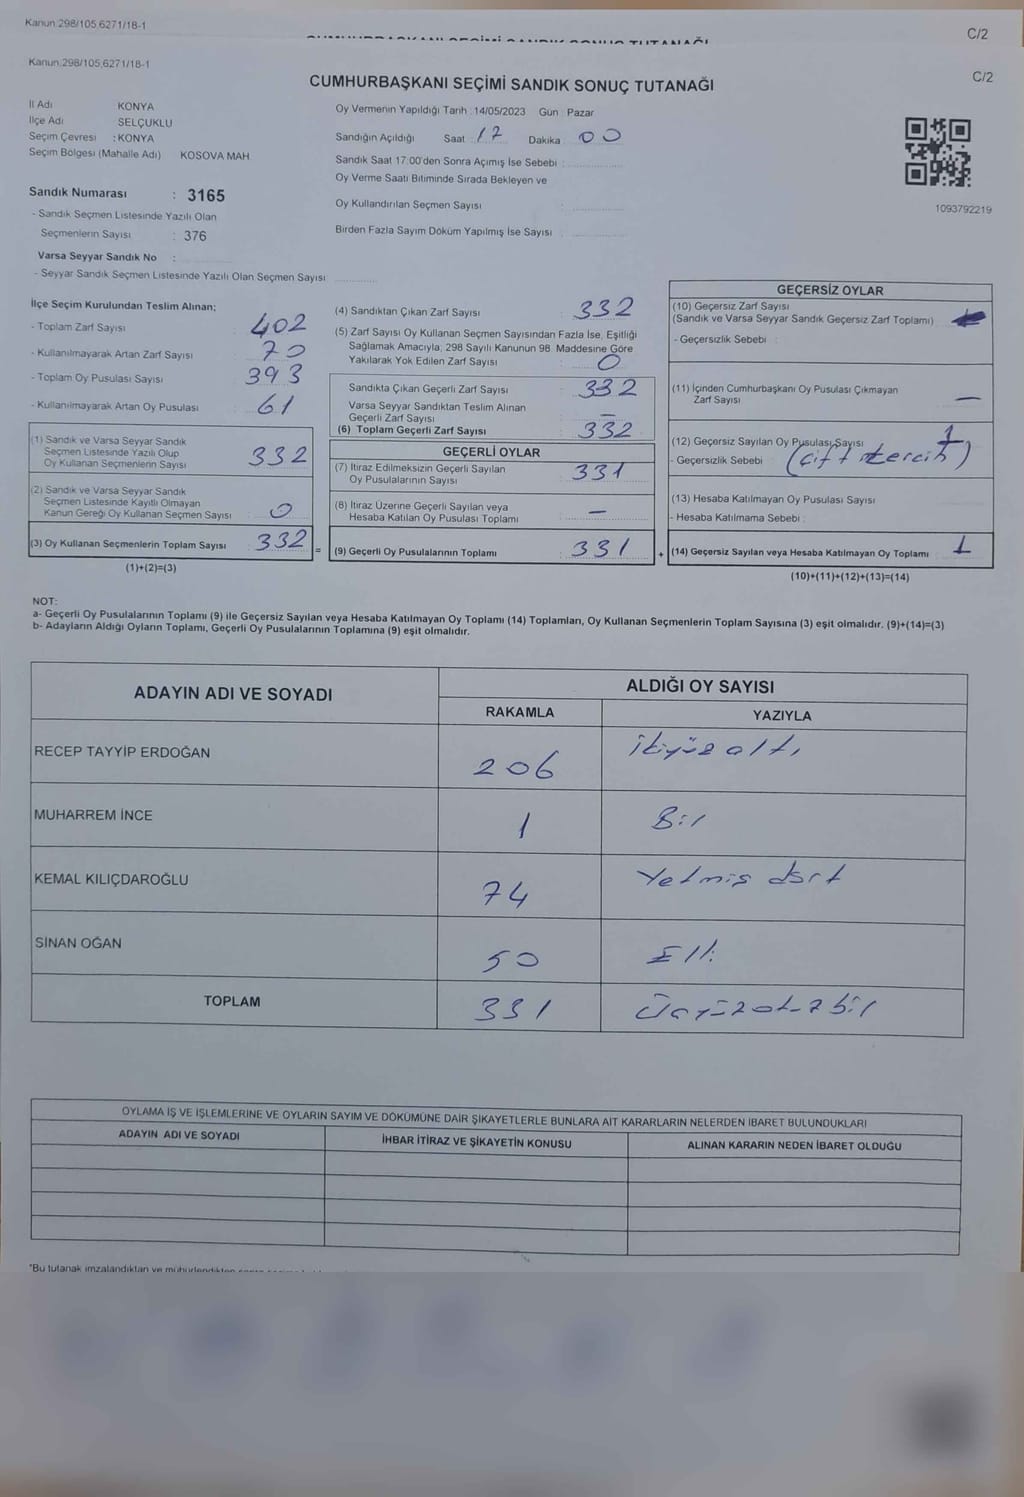 Kanun:298/105,6271/18-1
C/2
Kanun:298/105,6271/18-1
C/2
CUMHURBAŞKANI SEÇİMİ SANDIK SONUÇ TUTANAĞI
İl Adı KONYA
İlçe Adı SELÇUKLU
Seçim Çevresi : KONYA
Seçim Bölgesi (Mahalle Adı) KOSOVA MAH.
Oy Vermenin Yapıldığı Tarih :14/05/2023 Gün : Pazar
Sandığın Açıldığı Saat : 17 Dakika 00
Sandık Saat 17:00'den Sonra Açımış İse Sebebi :
Oy Verme Saati Bitiminde Sırada Bekleyen ve
Oy Kullandırılan Seçmen Sayısı :
Birden Fazla Sayım Döküm Yapılmış İse Sayısı :
1093792219
Sandık Numarası : 3165
- Sandık Seçmen Listesinde Yazılı Olan
Seçmenlerin Sayısı : 376
Varsa Seyyar Sandık No :
- Seyyar Sandık Seçmen Listesinde Yazılı Olan Seçmen Sayısı
İlçe Seçim Kurulundan Teslim Alınan;
- Toplam Zarf Sayısı 402
- Kullanılmayarak Artan Zarf Sayısı 70
- Toplam Oy Pusulası Sayısı 393
- Kullanılmayarak Artan Oy Pusulası 61
(1) Sandık ve Varsa Seyyar Sandık
Seçmen Listesinde Yazılı Olup
Oy Kullanan Seçmenlerin Sayısı 332
(2) Sandık ve Varsa Seyyar Sandık
Seçmen Listesinde Kayıtlı Olmayan
Kanun Gereği Oy Kullanan Seçmen Sayısı 0
(3) Oy Kullanan Seçmenlerin Toplam Sayısı 332 =
(1)+(2)=(3)
(4) Sandıktan Çıkan Zarf Sayısı : 332
(5) Zarf Sayısı Oy Kullanan Seçmen Sayısından Fazla İse, Eşitliği
Sağlamak Amacıyla, 298 Sayılı Kanunun 98. Maddesine Göre
Yakılarak Yok Edilen Zarf Sayısı : 0
Sandıkta Çıkan Geçerli Zarf Sayısı : 332
Varsa Seyyar Sandıktan Teslim Alınan
Geçerli Zarf Sayısı : —
(6) Toplam Geçerli Zarf Sayısı : 332
GEÇERLİ OYLAR
(7) İtiraz Edilmeksizin Geçerli Sayılan
Oy Pusulalarının Sayısı : 331
(8) İtiraz Üzerine Geçerli Sayılan veya
Hesaba Katılan Oy Pusulası Toplamı : —
(9) Geçerli Oy Pusulalarının Toplamı : 331 +
GEÇERSİZ OYLAR
(10) Geçersiz Zarf Sayısı
(Sandık ve Varsa Seyyar Sandık Geçersiz Zarf Toplamı)
- Geçersizlik Sebebi :
(11) İçinden Cumhurbaşkanı Oy Pusulası Çıkmayan
Zarf Sayısı —
(12) Geçersiz Sayılan Oy Pusulası Sayısı 1
- Geçersizlik Sebebi : (çift tercih)
(13) Hesaba Katılmayan Oy Pusulası Sayısı
- Hesaba Katılmama Sebebi :
(14) Geçersiz Sayılan veya Hesaba Katılmayan Oy Toplamı : 1
(10)+(11)+(12)+(13)=(14)
NOT:
a- Geçerli Oy Pusulalarının Toplamı (9) ile Geçersiz Sayılan veya Hesaba Katılmayan Oy Toplamı (14) Toplamları, Oy Kullanan Seçmenlerin Toplam Sayısına (3) eşit olmalıdır. (9)+(14)=(3)
b- Adayların Aldığı Oyların Toplamı, Geçerli Oy Pusulalarının Toplamına (9) eşit olmalıdır.
ADAYIN ADI VE SOYADI
ALDIĞI OY SAYISI
RAKAMLA YAZIYLA
RECEP TAYYİP ERDOĞAN 206 ikiyüz altı
MUHARREM İNCE 1 Bir
KEMAL KILIÇDAROĞLU 74 Yetmiş dört
SİNAN OĞAN 50 Elli
TOPLAM 331 Üçyüzotuzbir
OYLAMA İŞ VE İŞLEMLERİNE VE OYLARIN SAYIM VE DÖKÜMÜNE DAİR ŞİKAYETLERLE BUNLARA AİT KARARLARIN NELERDEN İBARET BULUNDUKLARI
ADAYIN ADI VE SOYADI İHBAR İTİRAZ VE ŞİKAYETİN KONUSU ALINAN KARARIN NEDEN İBARET OLDUĞU
*Bu tutanak imzalandıktan ve mühürlendikten